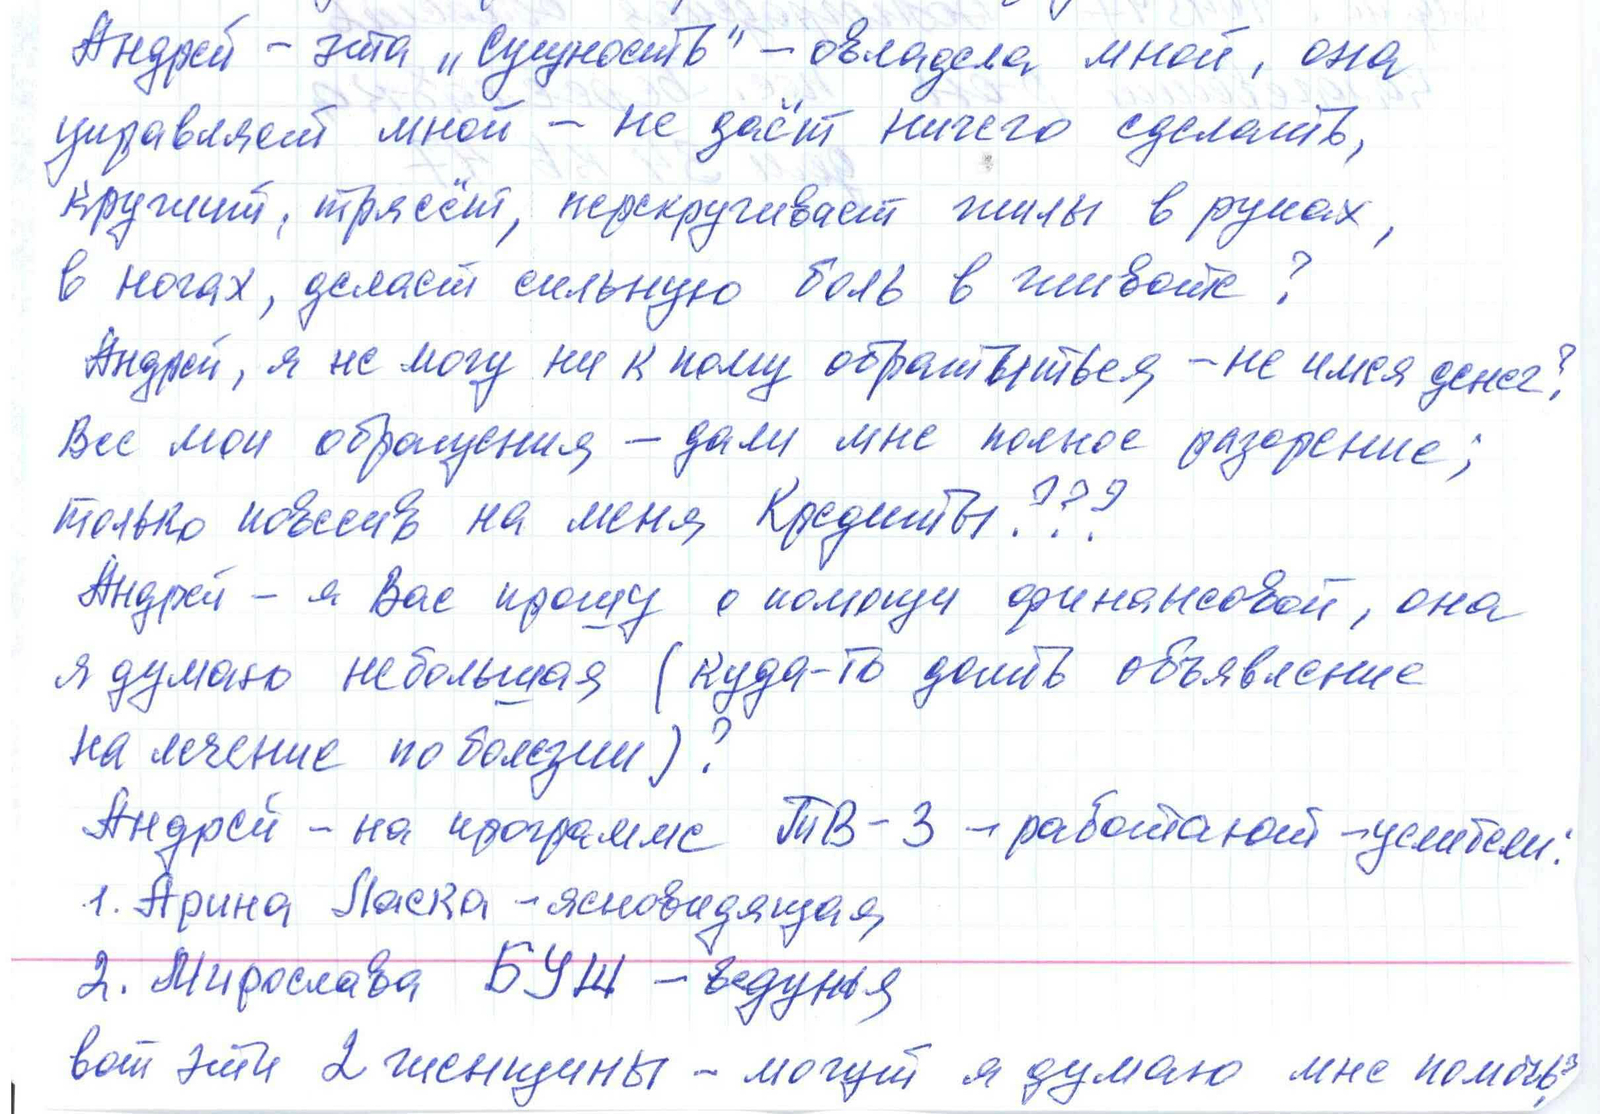 Андрей – эта „Сущность" – овладела мной, она
управляет мной – не даёт ничего сделать,
кружит, трясёт, перекручивает жилы в руках,
в ногах, делает сильную боль в животе?
Андрей, я не могу ни к кому обратиться – не имея денег?
Все мои обращения – дали мне полное разорение;
только повесив на меня Кредиты???
Андрей – я Вас прошу о помощи финансовой, она
я думаю небольшая (куда-то дать объявление
на лечение по болезни)?
Андрей – на программе ТВ-3 – работают – целители:
1. Арина Ласка – ясновидящая
2. Мирослава БУШ – ведунья
вот эти 2 женщины – могут я думаю мне помочь?